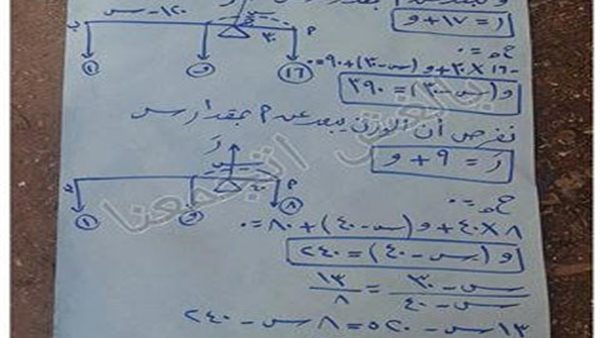 ر = ١٧ + و
١٢٠ - س
٣٠
ب
م
١
و
١٦
ج م = ٠
-١٦ × ٣٠ + و (س - ٣٠) + ٩٠ = ٠
و (س - ٣٠) = ٣٩٠
نفرض أن الوزن يبعد عن م بمقدار س
رَ = ٩ + و
رَ
س
٤٠
م
١
و
٨
ج م = ٠
٨ × ٤٠ + و (س - ٤٠) + ٨٠ = ٠
و (س - ٤٠) = ٢٤٠
س - ٣٠ / س - ٤٠ = ١٣ / ٨
١٣ س - ٥٢٠ = ٨ س - ٢٤٠
اتجمعنا